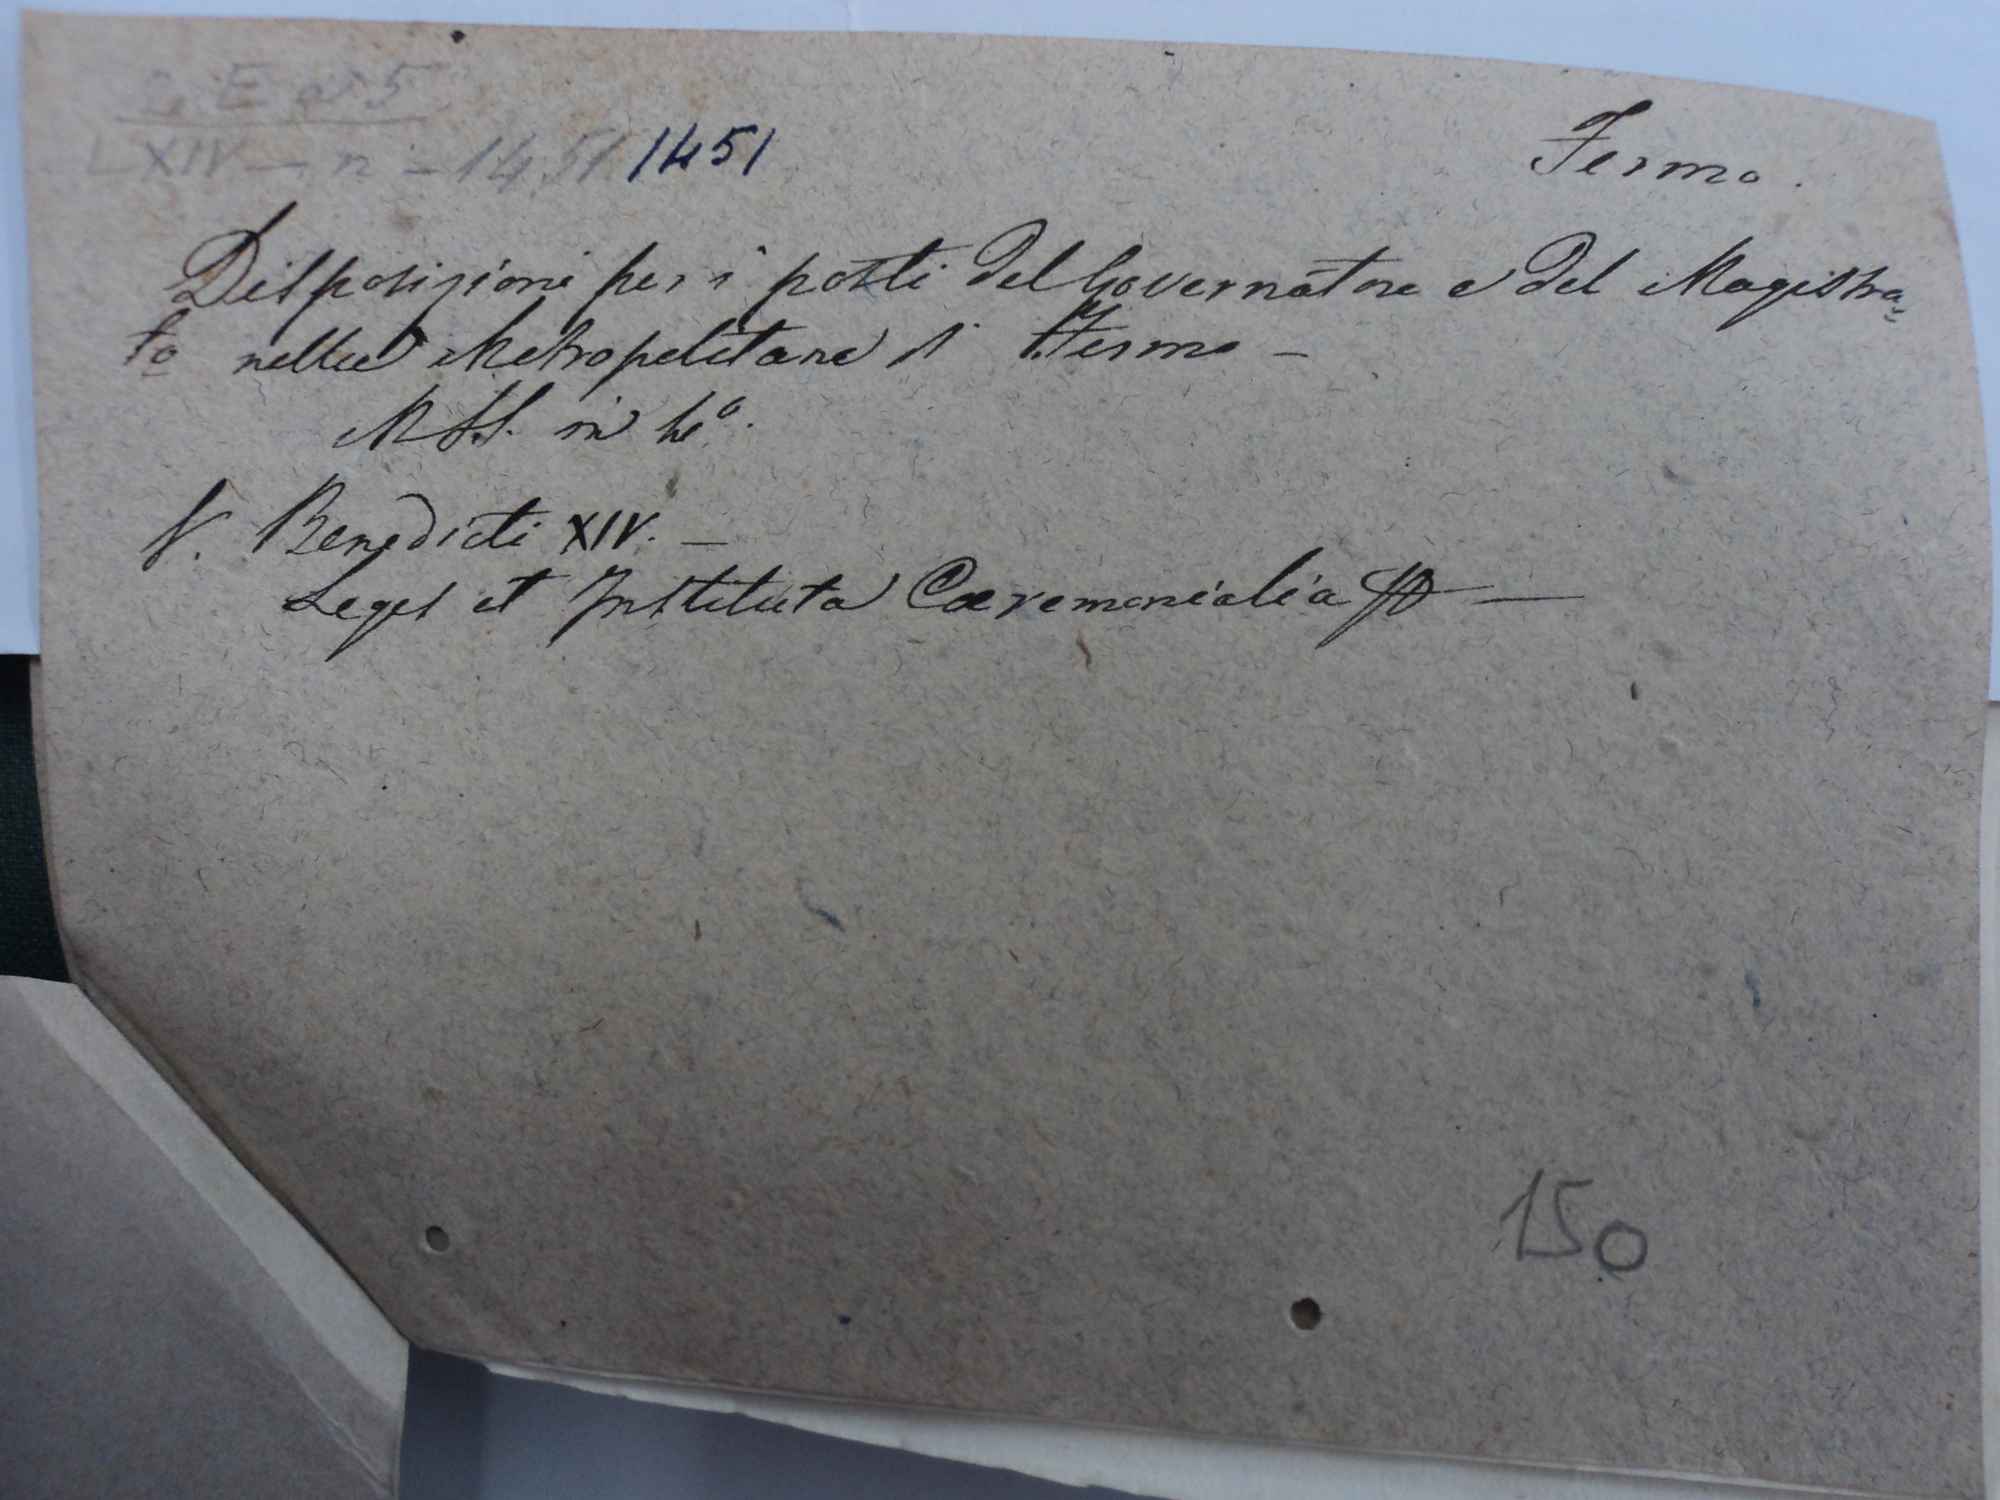 4 E d 5
LXIV - n - 1451 1451
Fermo.
Disposizioni per i posti del Governatore e del Magistra=
to nella Metropolitana di Fermo -
MSS. in 4°.
V. Benedicti XIV. -
Leges et Instituta Cæremonialia -
150